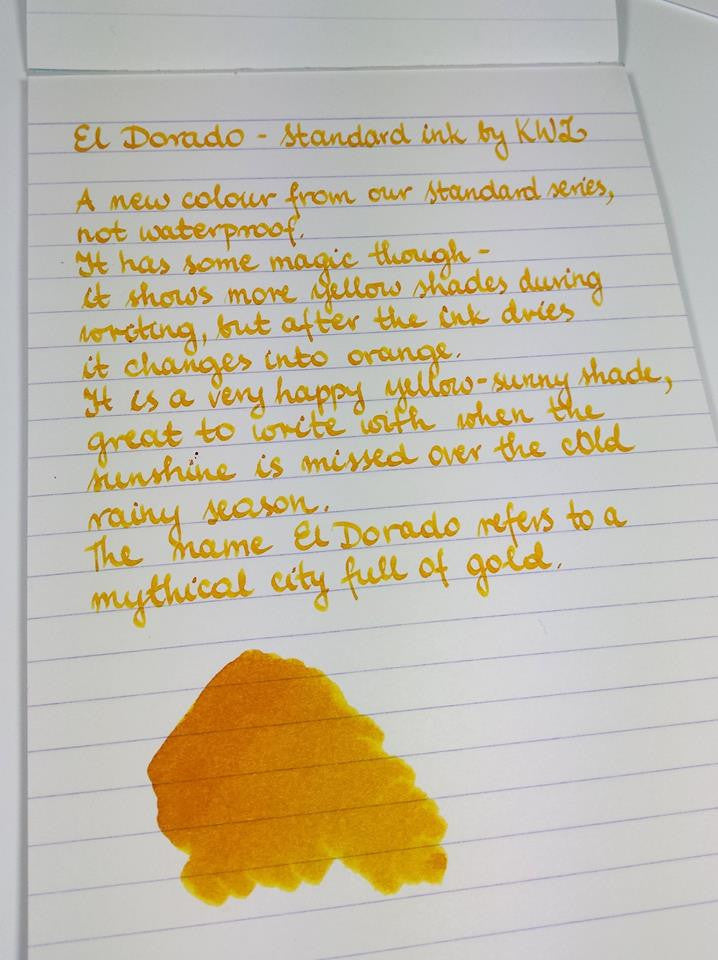 El Dorado - Standard ink by KWZ
A new colour from our standard series,
not waterproof.
It has some magic though -
it shows more yellow shades during
writing, but after the ink dries
it changes into orange.
It is a very happy yellow-sunny shade,
great to write with when the
sunshine is missed over the cold
rainy season.
The name El Dorado refers to a
mythical city full of gold.